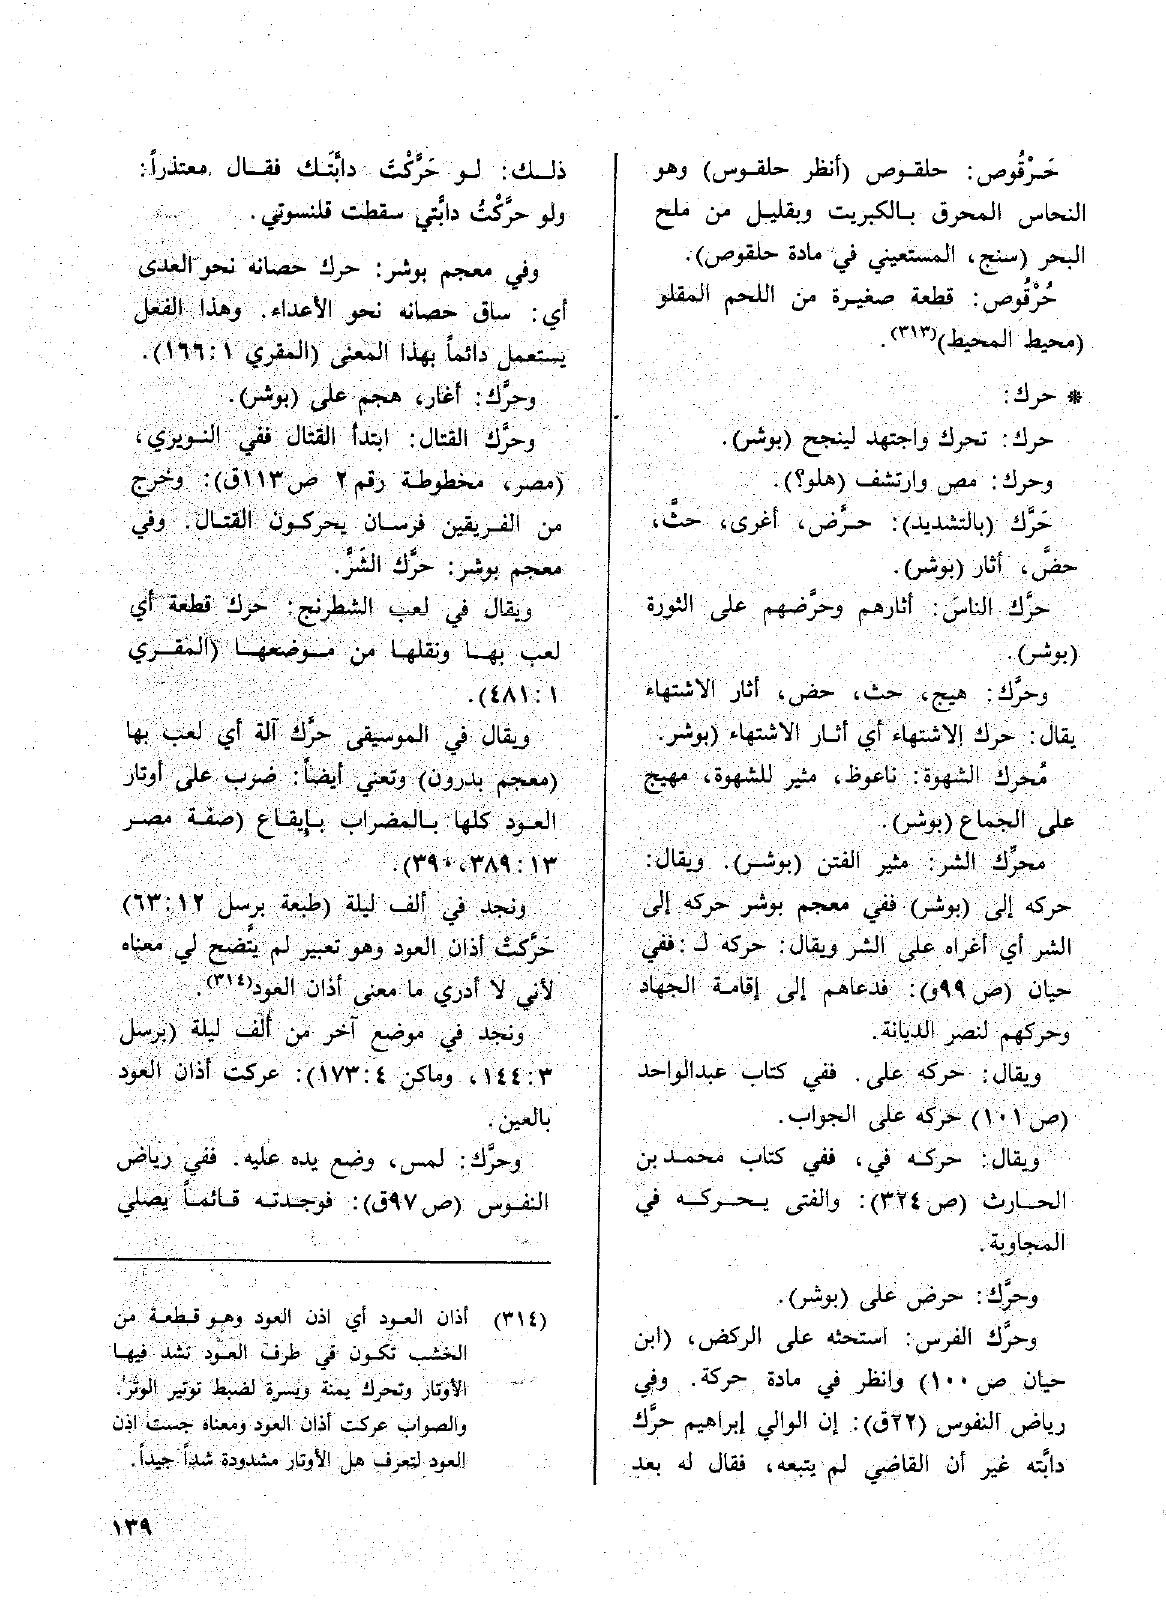 حَرْقُوص: حلقوص (أنظر حلقوس) وهو
النحاس المحرق بالكبريت وبقليل من ملح
البحر (سنج، المستعيني في مادة حلقوص).
حُرْقُوص: قطعة صغيرة من اللحم المقلو
(محيط المحيط)(٣١٣).
* حرك:
حرك: تحرك واجتهد لينجح (بوشر).
وحرك: مص وارتشف (هلو؟).
حَرَّك (بالتشديد): حرَّض، أغرى، حثَّ،
حضَّ، أثار (بوشر).
حرَّك الناسَ: أثارهم وحرَّضهم على الثورة
(بوشر).
وحرَّك: هيج، حث، حض، أثار الاشتهاء
يقال: حرك الاشتهاء أي أثار الاشتهاء (بوشر.
مُحرك الشهوة: ناعوظ، مثير للشهوة، مهيج
على الجماع (بوشر).
محرِّك الشر: مثير الفتن (بوشر). ويقال:
حركه إلى (بوشر) ففي معجم بوشر حركه إلى
الشر أي أغراه على الشر ويقال: حركه لـ: ففي
حيان (ص٩٩و): فدعاهم إلى إقامة الجهاد
وحركهم لنصر الديانة.
ويقال: حركه على. ففي كتاب عبدالواحد
(ص١٠١) حركه على الجواب.
ويقال: حركه في، ففي كتاب محمد بن
الحارث (ص٣٢٤): والفتى يحركه في
المجاوبة.
وحرَّك: حرض على (بوشر).
وحرَّك الفرس: استحثه على الركض، (ابن
حيان ص١٠٠) وانظر في مادة حركة. وفي
رياض النفوس (٢٢ق): إن الوالي إبراهيم حرَّك
دابَّته غير أن القاضي لم يتبعه، فقال له بعد
ذلك: لو حَرَّكْتَ دابَّتَك فقال معتذراً:
ولو حرَّكْتُ دابَّتي سقطت قلنسوتي.
وفي معجم بوشر: حرك حصانه نحو العدى
أي: ساق حصانه نحو الأعداء. وهذا الفعل
يستعمل دائماً بهذا المعنى (المقري ١: ١٦٦).
وحرَّك: أغار، هجم على (بوشر).
وحرَّك القتال: ابتدأ القتال ففي النويري،
(مصر، مخطوطة رقم ٢ ص١١٣ق): وخرج
من الفريقين فرسان يحركون القتال. وفي
معجم بوشر: حرَّك الشَرَّ.
ويقال في لعب الشطرنج: حرك قطعة أي
لعب بها ونقلها من موضعها (المقري
١: ٤٨١).
ويقال في الموسيقى حرَّك آلة أي لعب بها
(معجم بدرون) وتعني أيضاً: ضرب على أوتار
العود كلها بالمضراب بإيقاع (صفة مصر
١٣: ٣٨٩، ٣٩٠).
ونجد في ألف ليلة (طبعة برسل ١٢: ٦٣)
حَرَّكتْ أذان العود وهو تعبير لم يتَّضح لي معناه
لأني لا أدري ما معنى أذان العود(٣١٤).
ونجد في موضع آخر من ألف ليلة (برسل
٣: ١٤٤، وماكن ٤: ١٧٣): عركت أذان العود
بالعين.
وحرَّك: لمس، وضع يده عليه. ففي رياض
النفوس (ص٩٧ق): فوجدته قائماً يصلي
(٣١٤) أذان العود أي اذن العود وهو قطعة من
الخشب تكون في طرف العود تشد فيها
الأوتار وتحرك يمنة ويسرة لضبط توتير الوتر.
والصواب عركت أذان العود ومعناه جست اذن
العود لتعرف هل الأوتار مشدودة شداً جيداً.
١٣٩